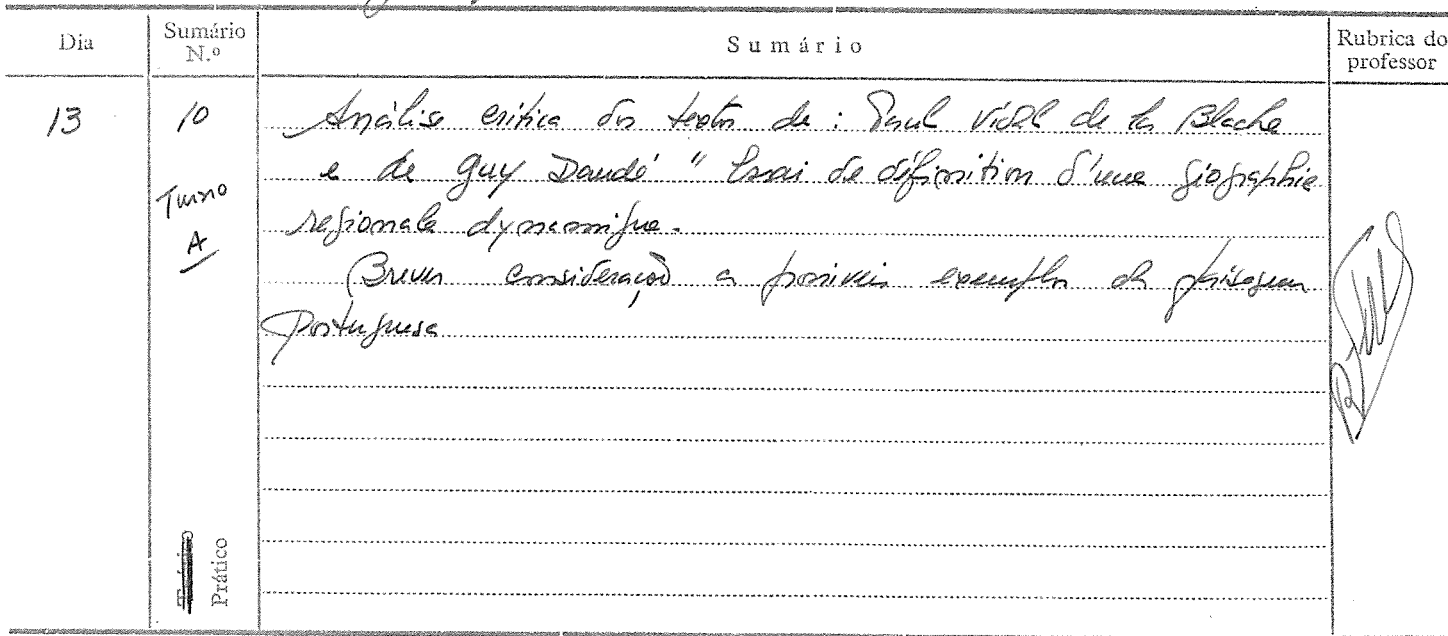 Dia
Sumário N.º
Sumário
Rubrica do professor
13
10
Turno A
Análise crítica dos textos de : Paul Vidal de la Blache
e de Guy Daudé " Essai de définition d'une géographie
regionale dynamique.
Breves consideração a possiveis exemplos da paisagem
Portuguesa
Prático